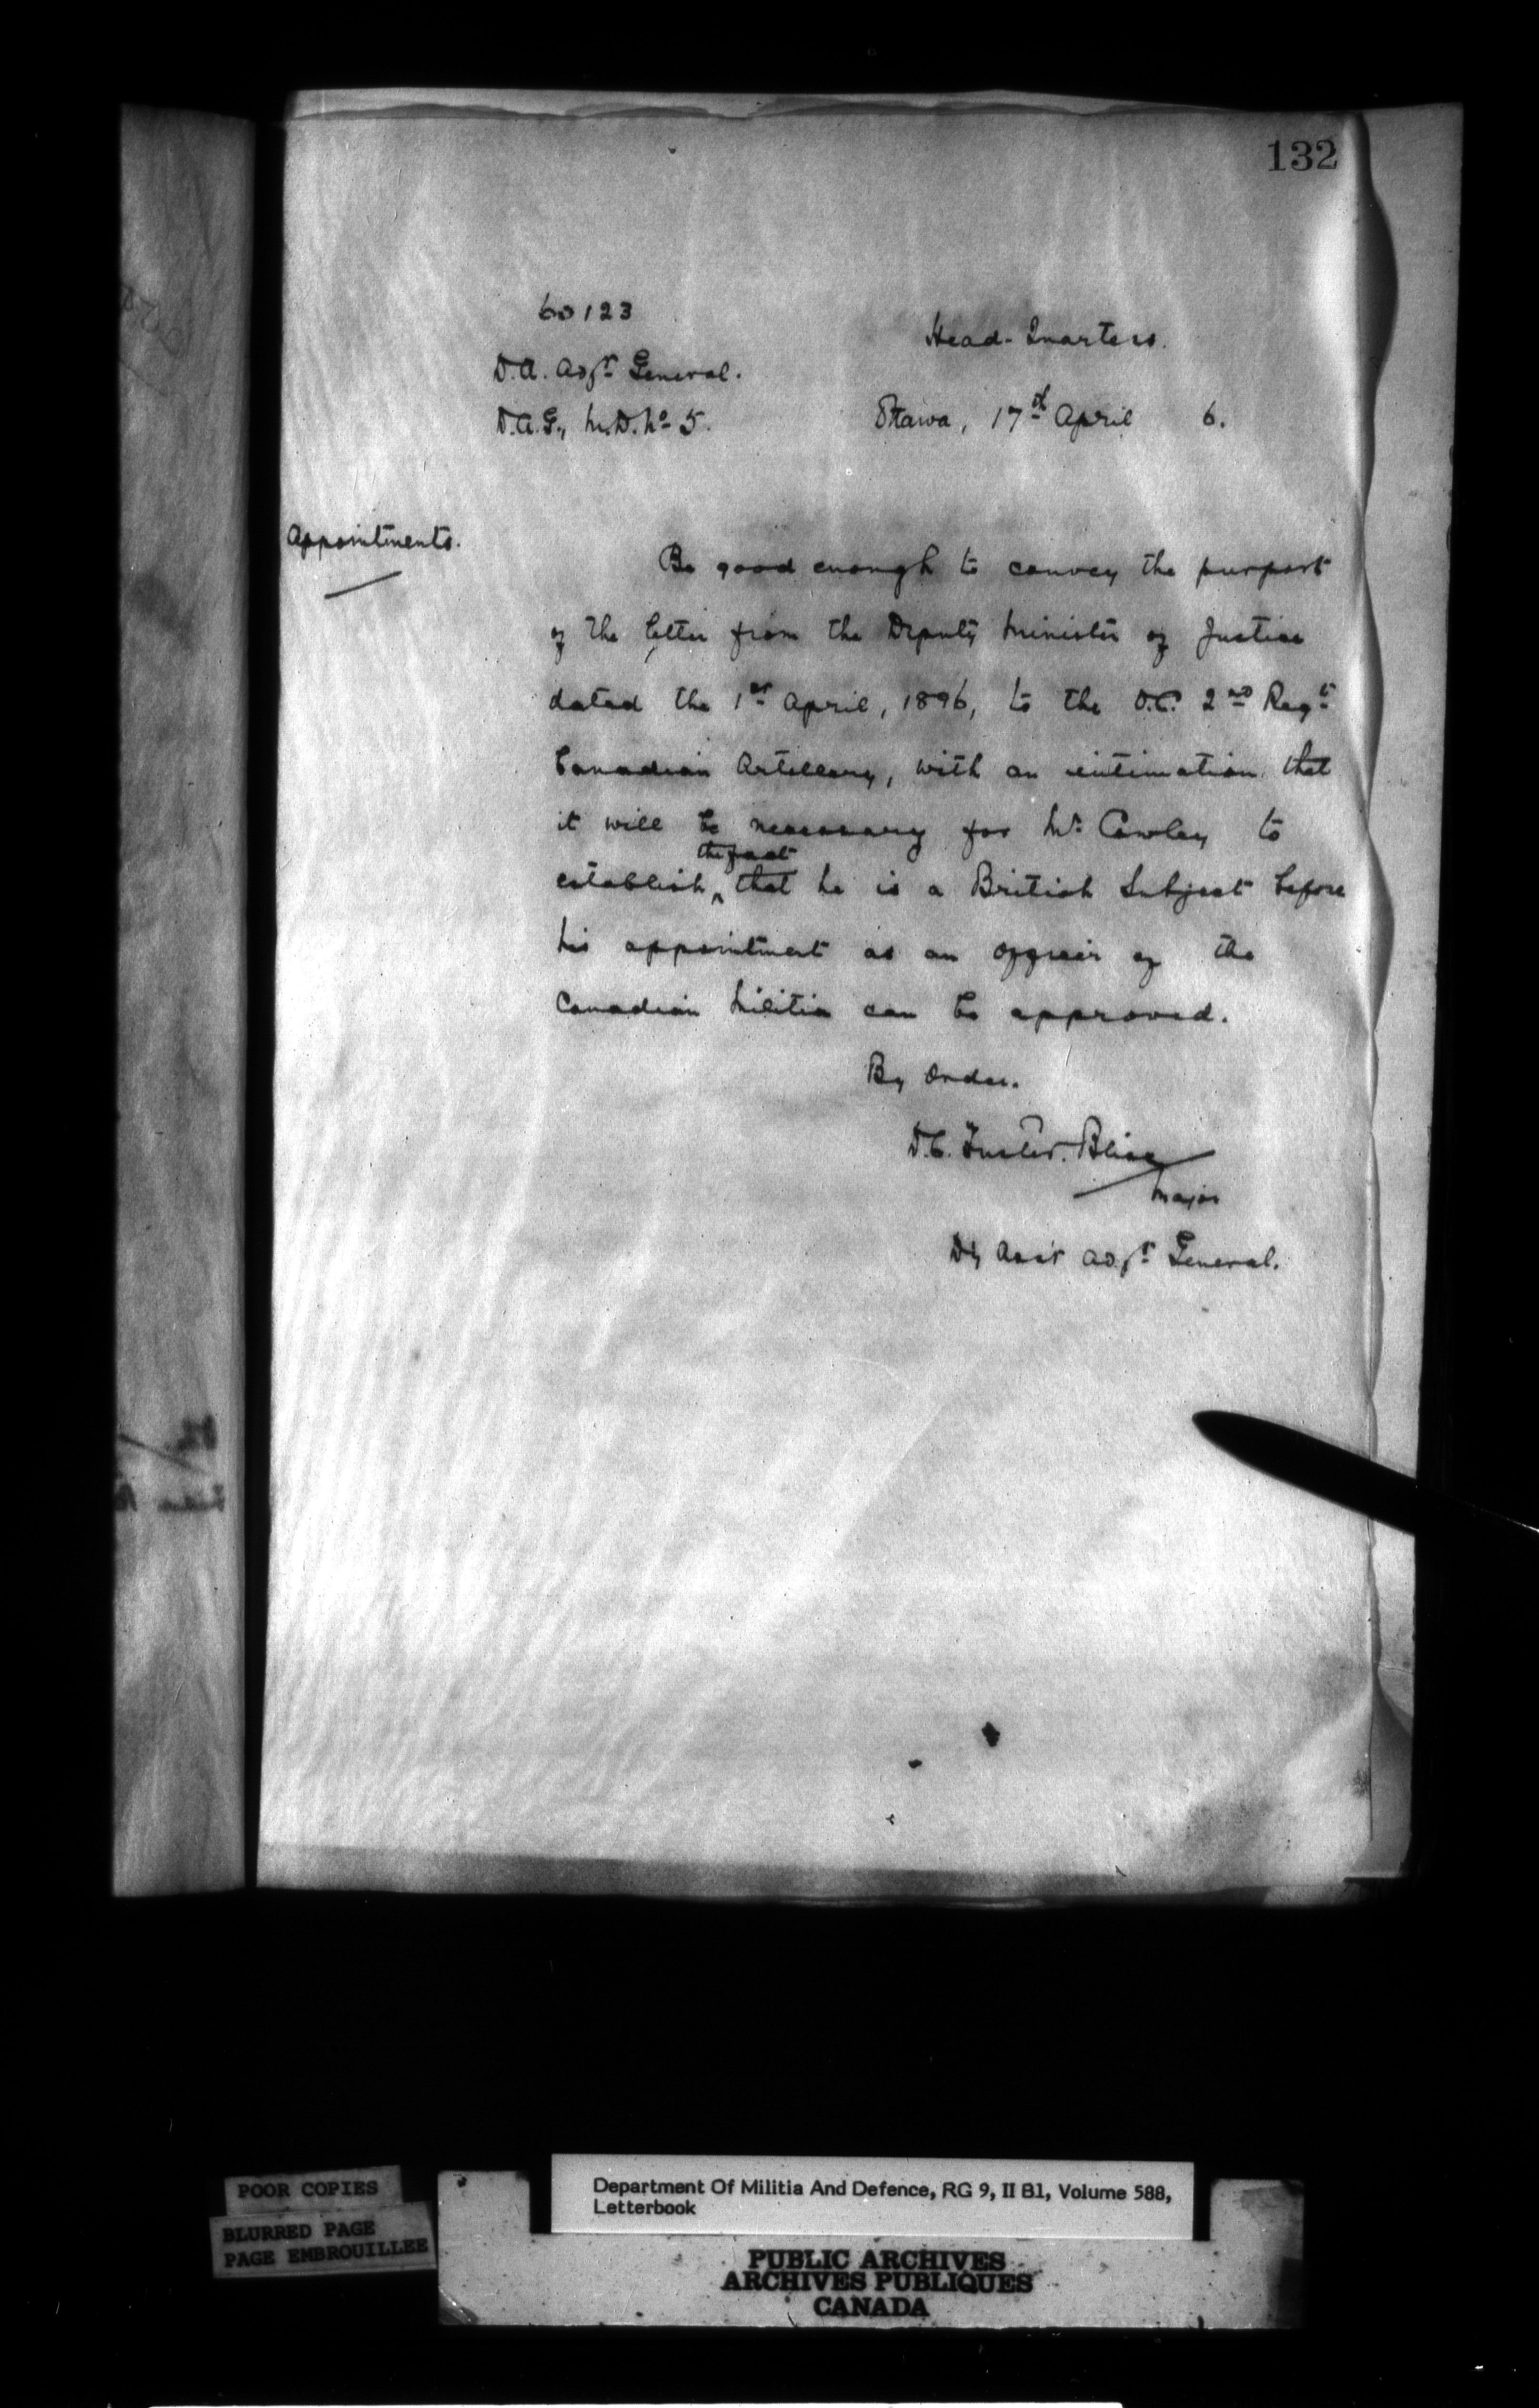 132
60123
Head-Quarters.
D.A. Adjt General.
D.A.G., M.D. No 5.
Ottawa, 17th April 6.
Appointments.
Be good enough to convey the purport
of the letter from the Deputy Minister of Justice
dated the 1st April, 1896, to the O.C. 2nd Regt
Canadian Artillery, with an intimation that
it will be necessary for Mr. Cowley to
the fact
establish that he is a British Subject before
his appointment as an officer of the
Canadian Militia can be approved.
By Order.
D.C. Forster Bliss
Major
Dy Asst Adjt General.
POOR COPIES
BLURRED PAGE
PAGE EMBROUILLEE
Department Of Militia And Defence, RG 9, II B1, Volume 588,
Letterbook
PUBLIC ARCHIVES
ARCHIVES PUBLIQUES
CANADA